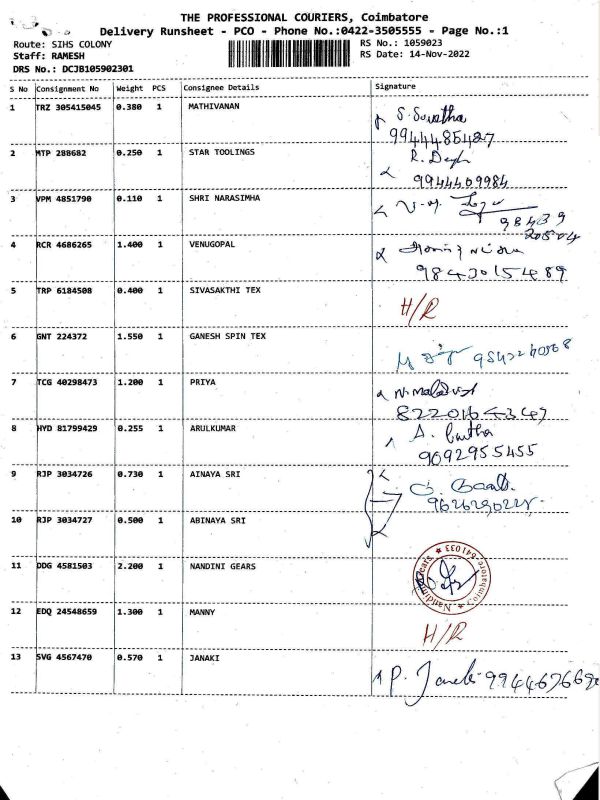 THE PROFESSIONAL COURIERS, Coimbatore
Delivery Runsheet - PCO - Phone No.:0422-3505555 - Page No.:1
Route: SIHS COLONY
RS No.: 1059023
Staff: RAMESH
RS Date: 14-Nov-2022
DRS No.: DCJB105902301
S No Consignment No Weight PCS Consignee Details Signature
1 TRZ 305415045 0.380 1 MATHIVANAN
9944485427
2 MTP 288682 0.250 1 STAR TOOLINGS
9944409984
3 VPM 4851790 0.110 1 SHRI NARASIMHA
98439
20504
4 RCR 4686265 1.400 1 VENUGOPAL
9843015489
5 TRP 6184508 0.400 1 SIVASAKTHI TEX
H/R
6 GNT 224372 1.550 1 GANESH SPIN TEX
7 TCG 40298473 1.200 1 PRIYA
8220164349
8 HYD 81799429 0.255 1 ARULKUMAR
9092955455
9 RJP 3034726 0.730 1 AINAYA SRI
10 RJP 3034727 0.500 1 ABINAYA SRI
11 DDG 4581503 2.200 1 NANDINI GEARS
Nandini Gears * Coimbatore 641033 *
12 EDQ 24548659 1.300 1 MANNY
H/R
13 SVG 4567470 0.570 1 JANAKI
P. Janaki